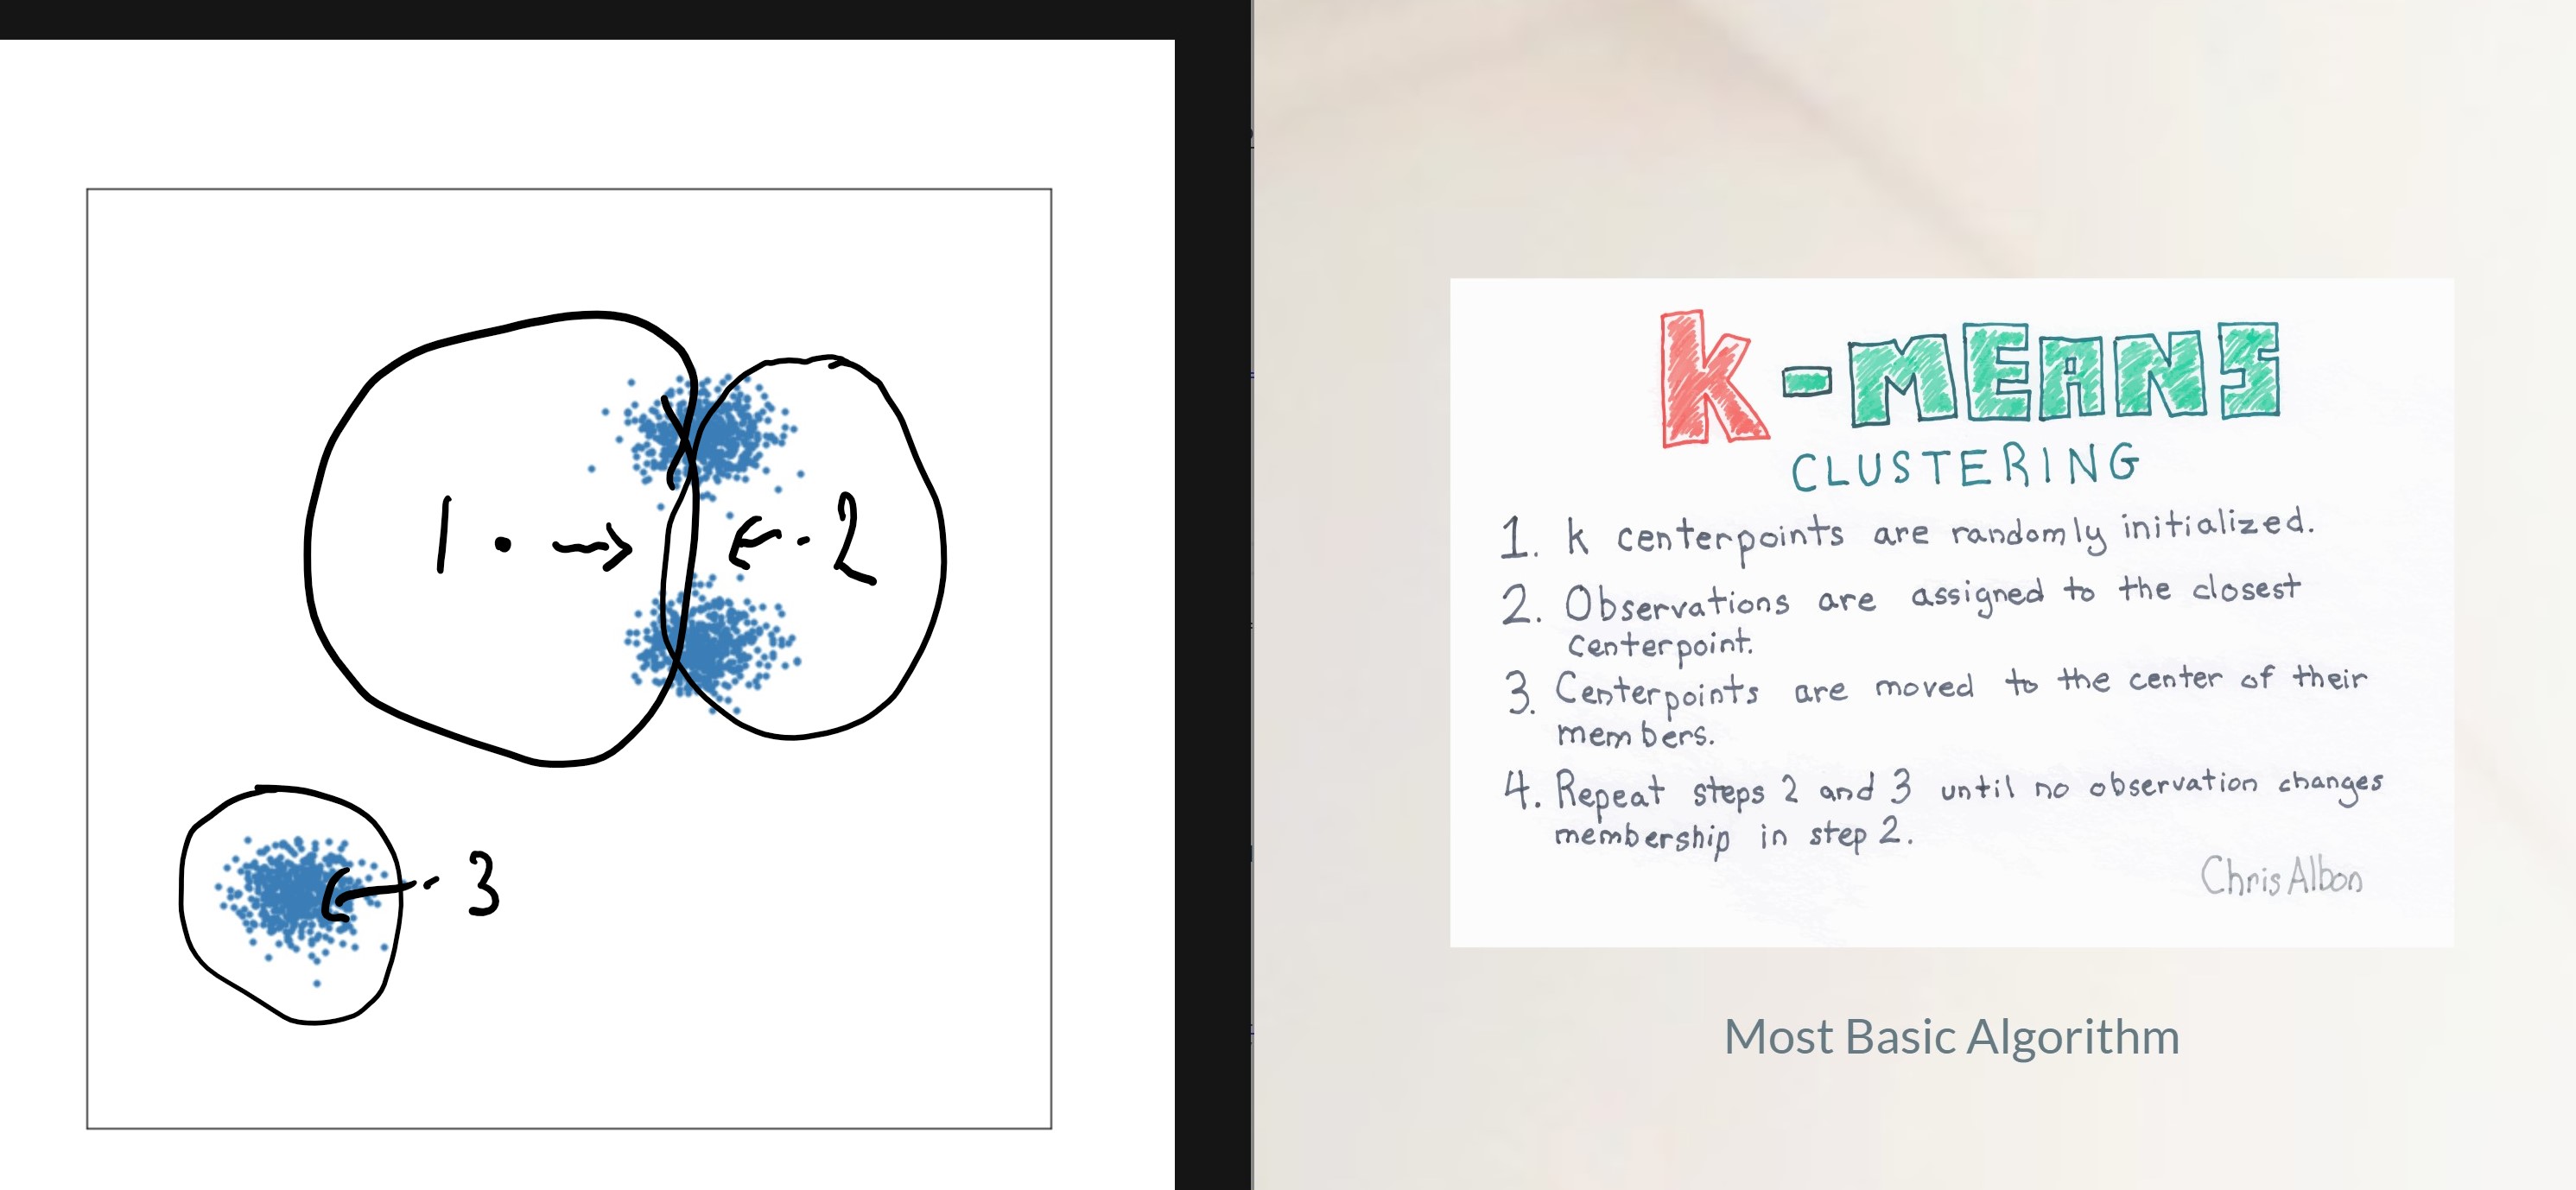 1
2
3
K-MEANS
CLUSTERING
1. k centerpoints are randomly initialized.
2. Observations are assigned to the closest
centerpoint.
3. Centerpoints are moved to the center of their
members.
4. Repeat steps 2 and 3 until no observation changes
membership in step 2.
Chris Albon
Most Basic Algorithm